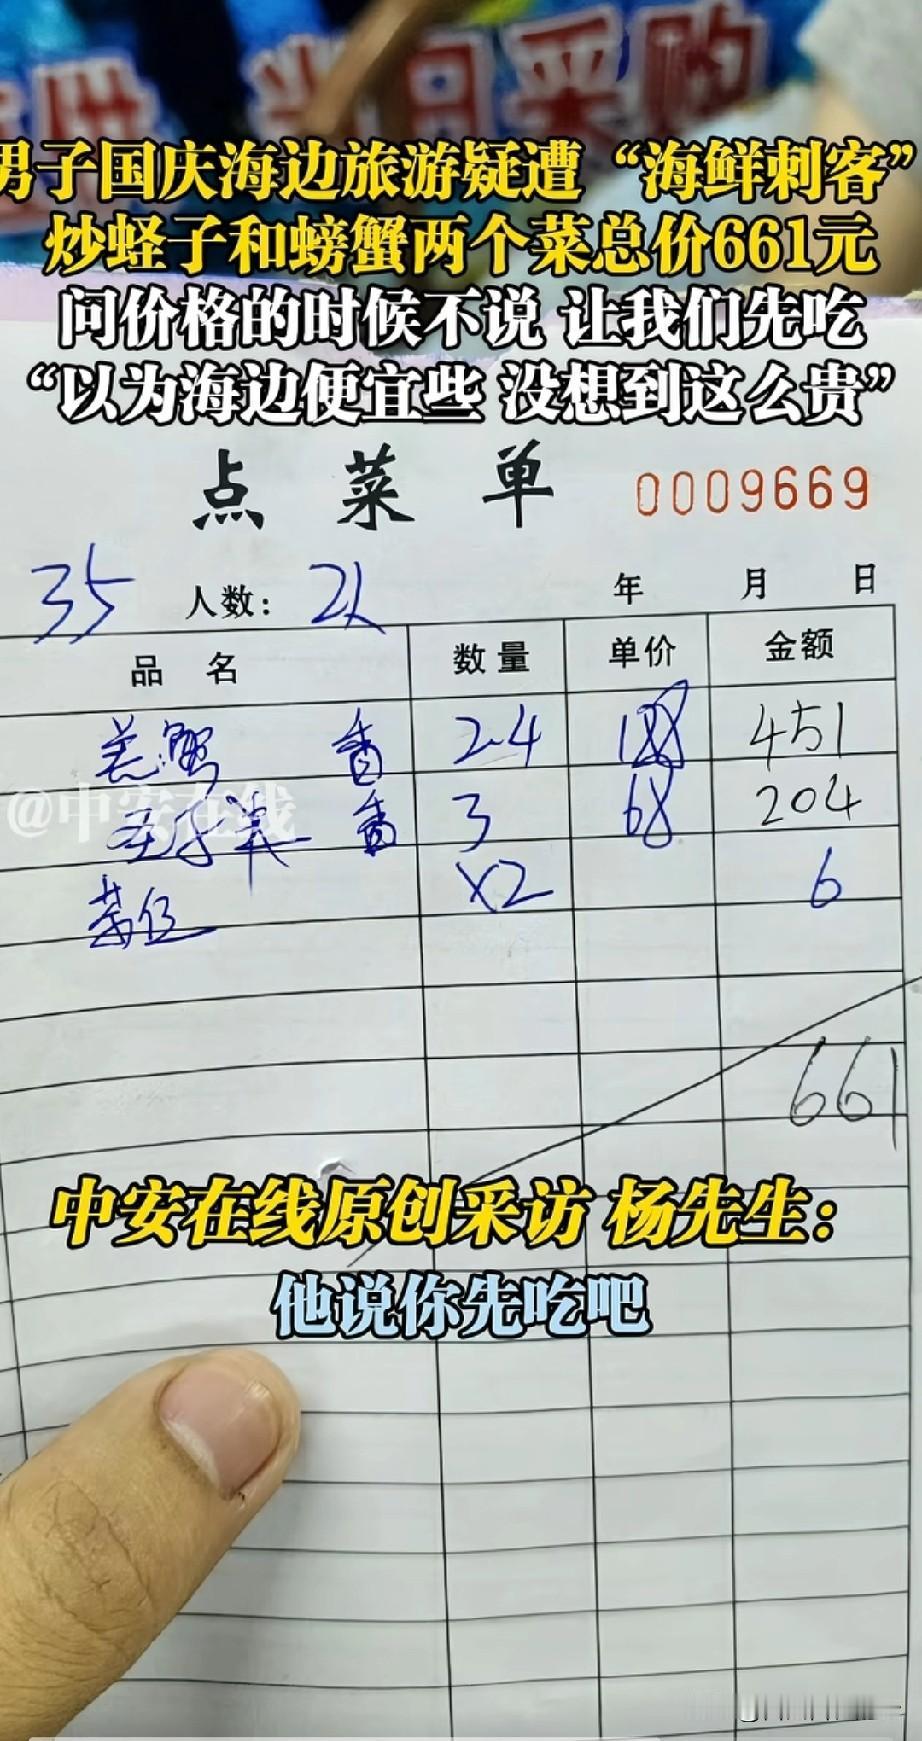 当日采购
男子国庆海边旅游疑遭“海鲜刺客”
炒蛏子和螃蟹两个菜总价661元
问价格的时候不说 让我们先吃
“以为海边便宜些 没想到这么贵”
点菜单 0009669
35 人数: 2人 年 月 日
品名 数量 单价 金额
羔蟹 香 2.4 188 451
@中安在线
3 68 204
茶位 x2 6
661
中安在线原创采访 杨先生：
他说你先吃吧